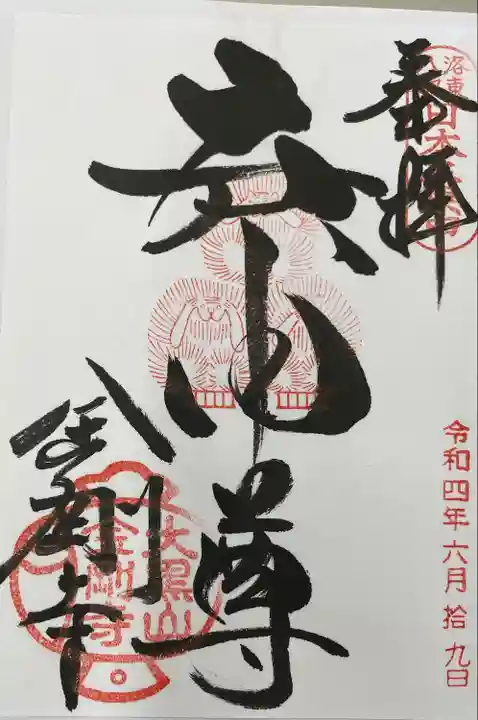 奉拝
洛東
庚申尊
令和四年六月拾九日
金剛寺
大黒山
金剛寺